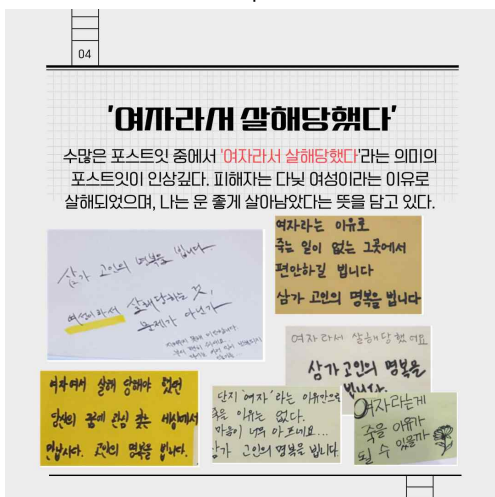 04
'여자라서 살해당했다'
수많은 포스트잇 중에서 '여자라서 살해당했다'라는 의미의
포스트잇이 인상깊다. 피해자는 다닞 여성이라는 이유로
살해되었으며, 나는 운 좋게 살아남았다는 뜻을 담고 있다.
삼가 고인의 명복을 빕니다
여성이라서 살해당하는 것,
문제가 아닌가
여자라는 이유로
죽는 일이 없는 그곳에서
편안하길 빕니다
삼가 고인의 명복을 빕니다
여자라서 살해당했어요
삼가 고인의 명복을
빕니다.
여자여서 살해 당해야 했던
당신의 꿈에 관심 갖는 세상에서
만납시다. 고인의 명복을 빕니다.
단지 '여자'라는 이유만으로
죽을 이유는 없다.
마음이 너무 아프네요...
삼가 고인의 명복을 빕니다
여자라는게
죽을 이유가
될 수 있을까